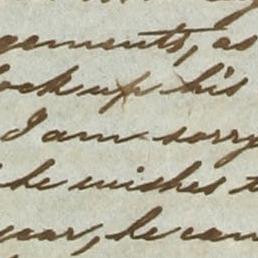 gements, as
lock up his
I am sorry
he wishes t
year, he can